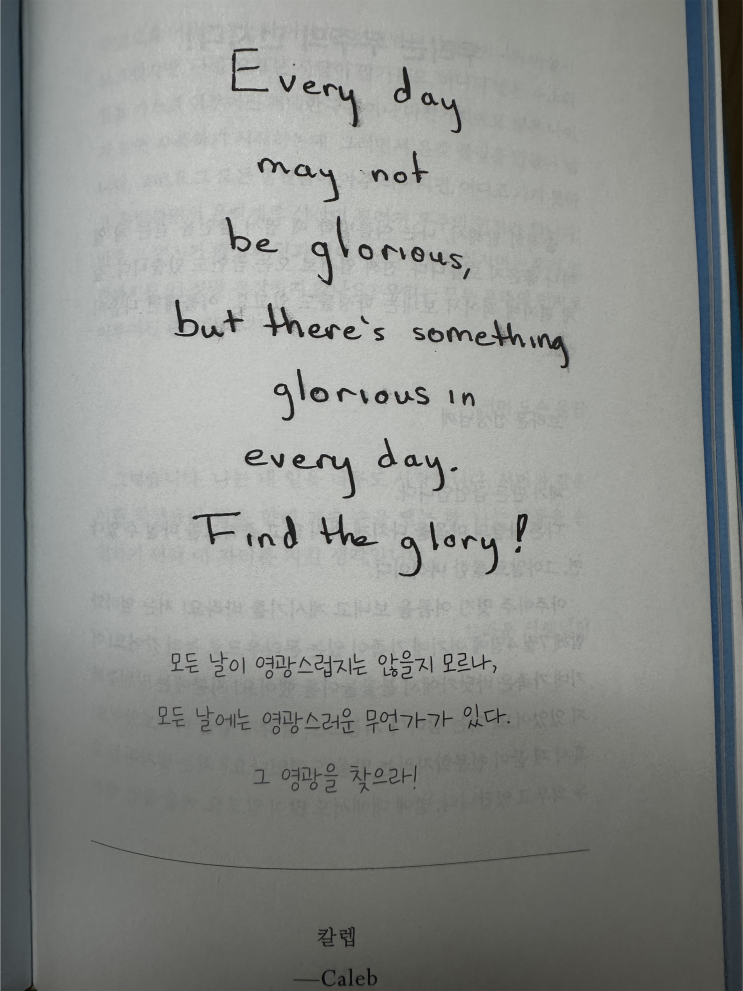 Every day
may not
be glorious,
but there's something
glorious in
every day.
Find the glory!
모든 날이 영광스럽지는 않을지 모르나,
모든 날에는 영광스러운 무언가가 있다.
그 영광을 찾으라!
칼렙
—Caleb